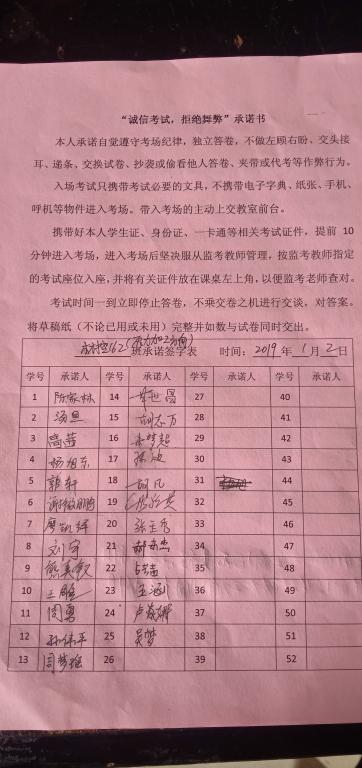 “诚信考试，拒绝舞弊”承诺书
本人承诺自觉遵守考场纪律，独立答卷，不做左顾右盼、交头接
耳、递条、交换试卷、抄袭或偷看他人答卷、夹带或代考等作弊行为。
入场考试只携带考试必要的文具，不携带电子字典、纸张、手机、
呼机等物件进入考场。带入考场的主动上交教室前台。
携带好本人学生证、身份证、一卡通等相关考试证件，提前 10
分钟进入考场，进入考场后坚决服从监考教师管理，按监考教师指定
的考试座位入座，并将有关证件放在课桌左上角，以便监考老师查对。
考试时间一到立即停止答卷，不乘交卷之机进行交谈，对答案。
将草稿纸（不论已用或未用）完整并如数与试卷同时交出。
162 班承诺签字表 时间：2019 年 1 月 2 日
学号 承诺人 学号 承诺人 学号 承诺人 学号 承诺人
1 陈家林 14 27 40
2 汤思 15 胡志万 28 41
3 高蒂 16 朱梦超 29 42
4 杨旭东 17 30 43
5 郭轩 18 胡凡 31 44
6 谢敏鹏 19 32 45
7 廖凯辉 20 33 46
8 刘宇 21 34 47
9 熊美霞 22 35 48
10 王鹏 23 王涵 36 49
11 周勇 24 37 50
12 孙伟平 25 吴梦 38 51
13 周梦雅 26 39 52